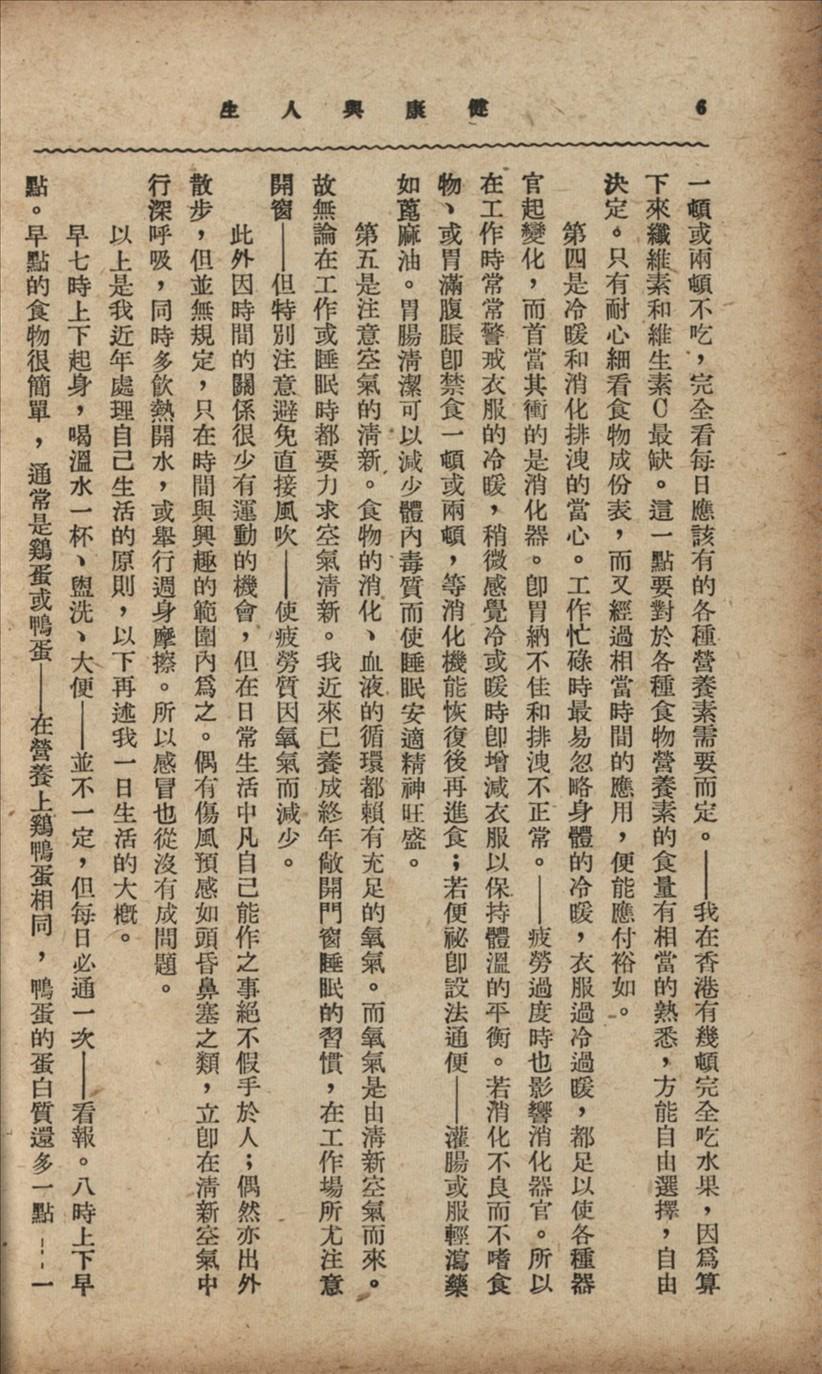 健康與人生
6
一頓或兩頓不吃，完全看每日應該有的各種營養素需要而定。——我在香港有幾頓完全吃水果，因爲算
下來纖維素和維生素C最缺。這一點要對於各種食物營養素的食量有相當的熟悉，方能自由選擇，自由
決定。只有耐心細看食物成份表，而又經過相當時間的應用，便能應付裕如。
第四是冷暖和消化排洩的當心。工作忙碌時最易忽略身體的冷暖，衣服過冷過暖，都足以使各種器
官起變化，而首當其衝的是消化器。卽胃納不佳和排洩不正常。——疲勞過度時也影響消化器官。所以
在工作時常常警戒衣服的冷暖，稍微感覺冷或暖時卽增減衣服以保持體溫的平衡。若消化不良而不嗜食
物、或胃滿腹脹卽禁食一頓或兩頓，等消化機能恢復後再進食；若便祕卽設法通便——灌腸或服輕瀉藥
如蓖麻油。胃腸淸潔可以減少體內毒質而使睡眠安適精神旺盛。
第五是注意空氣的淸新。食物的消化、血液的循環都賴有充足的氧氣。而氧氣是由淸新空氣而來。
故無論在工作或睡眠時都要力求空氣淸新。我近來已養成終年敞開門窗睡眠的習慣，在工作場所尤注意
開窗——但特別注意避免直接風吹——使疲勞質因氧氣而減少。
此外因時間的關係很少有運動的機會，但在日常生活中凡自己能作之事絕不假手於人；偶然亦出外
散步，但並無規定，只在時間與興趣的範圍內爲之。偶有傷風預感如頭昏鼻塞之類，立卽在淸新空氣中
行深呼吸，同時多飮熱開水，或舉行週身摩擦。所以感冒也從沒有成問題。
以上是我近年處理自己生活的原則，以下再述我一日生活的大槪。
早七時上下起身，喝溫水一杯、盥洗、大便——並不一定，但每日必通一次——看報。八時上下早
點。早點的食物很簡單，通常是鷄蛋或鴨蛋——在營養上鷄鴨蛋相同，鴨蛋的蛋白質還多一點---一